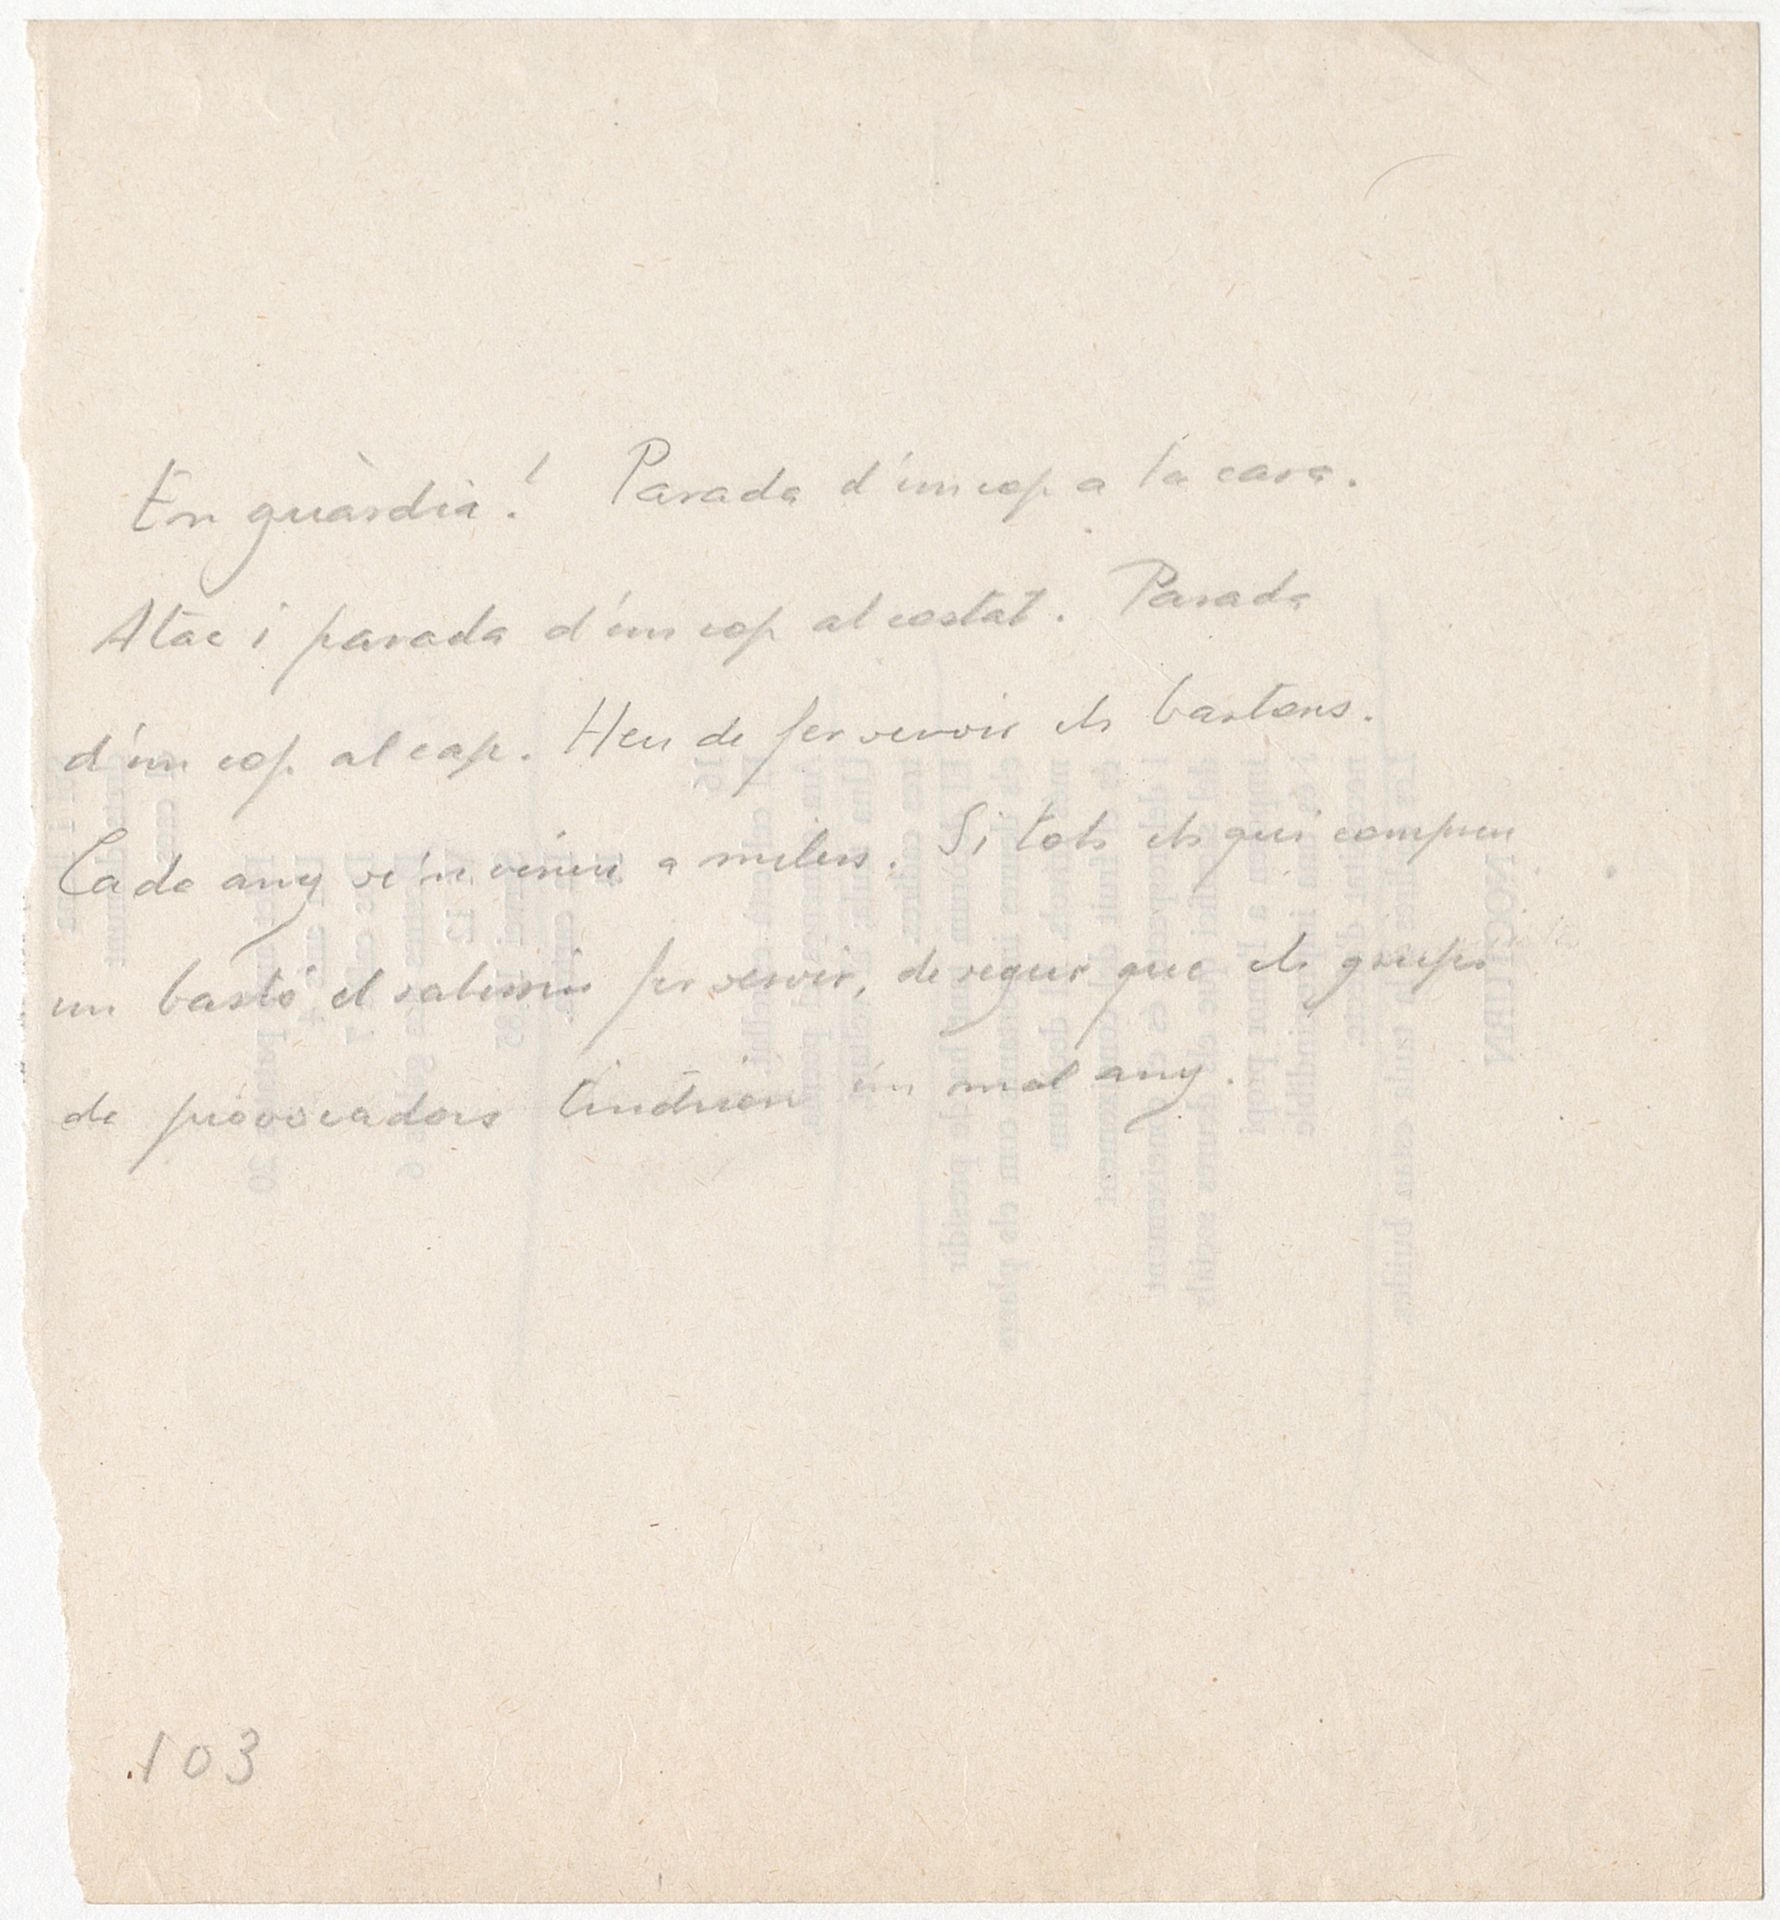 En guàrdia! Parada d'un cop a la cara.
Atac i parada d'un cop al costat. Parada
d'un cop al cap. Heu de fer servir els bastons.
Cada any se'n venen a milers. Si tots els qui compren
un bastó el sabessin fer servir, de segur que els grups
de provocadors tindrien un mal any.
103